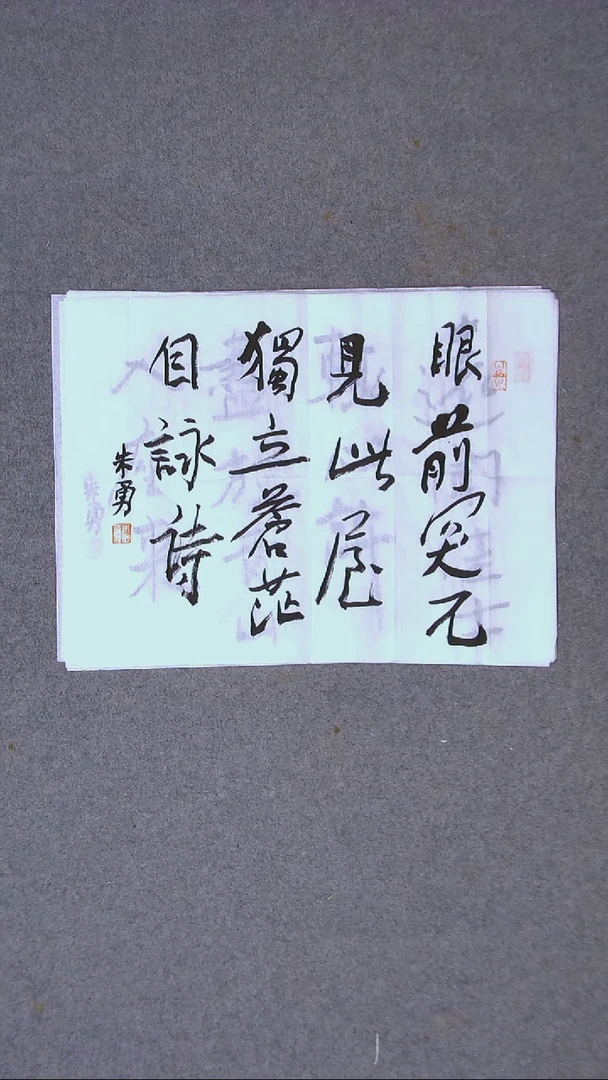 眼前突兀
見此屋
獨立蒼茫
自詠詩
朱勇